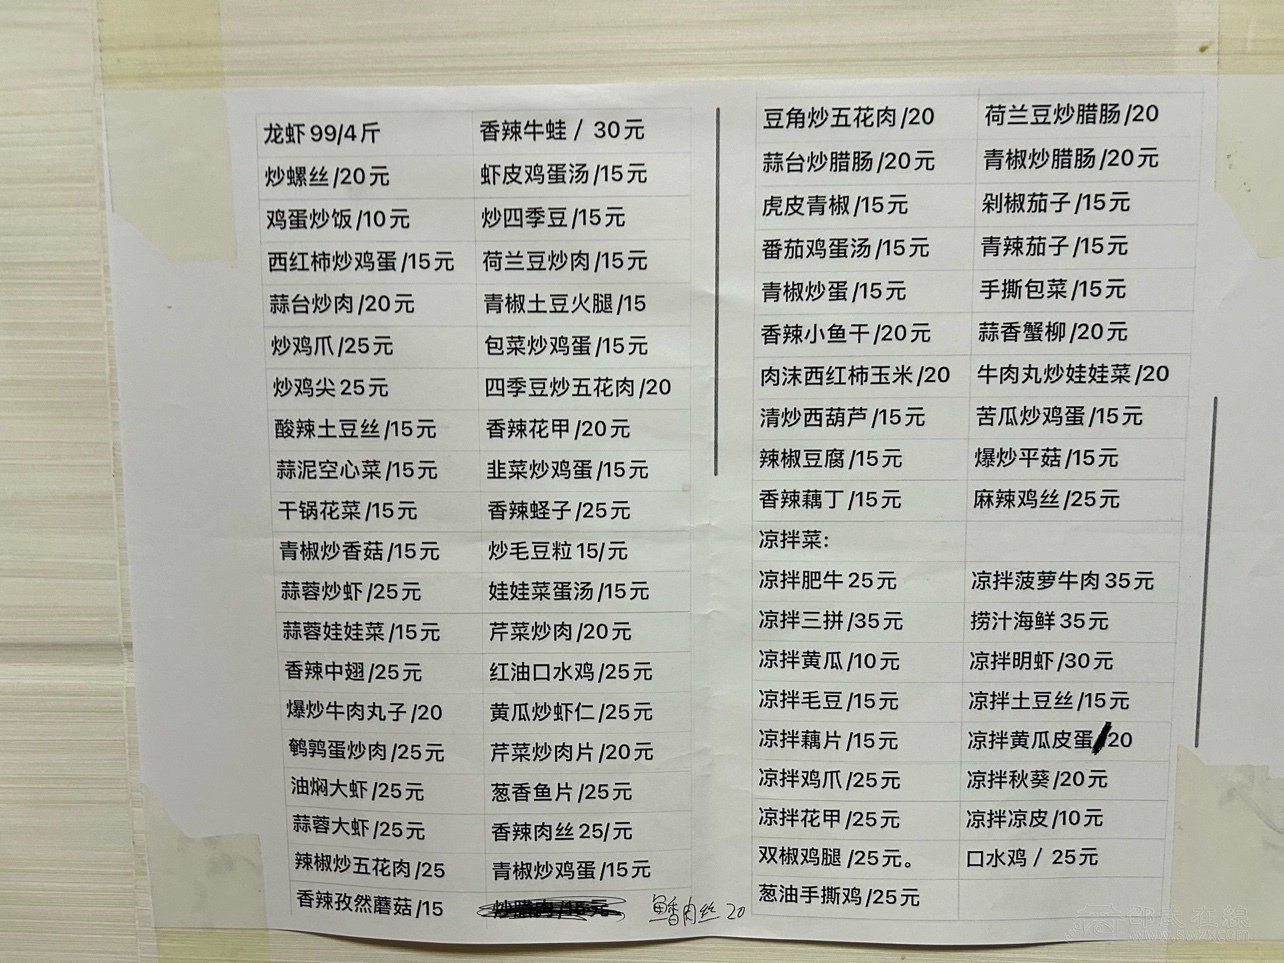 龙虾 99/4 斤
香辣牛蛙 / 30元
炒螺丝 /20 元
虾皮鸡蛋汤 /15元
鸡蛋炒饭 /10 元
炒四季豆 /15元
西红柿炒鸡蛋 /15 元
荷兰豆炒肉 /15元
蒜台炒肉 /20 元
青椒土豆火腿 /15
炒鸡爪 /25 元
包菜炒鸡蛋 /15元
炒鸡尖 25 元
四季豆炒五花肉 /20
酸辣土豆丝 /15 元
香辣花甲 /20 元
蒜泥空心菜 /15 元
韭菜炒鸡蛋 /15元
干锅花菜 /15 元
香辣蛏子 /25 元
青椒炒香菇 /15 元
炒毛豆粒 15/ 元
蒜蓉炒虾 /25 元
娃娃菜蛋汤 /15元
蒜蓉娃娃菜 /15 元
芹菜炒肉 /20 元
香辣中翅 /25 元
红油口水鸡 /25 元
爆炒牛肉丸子 /20
黄瓜炒虾仁 /25 元
鹌鹑蛋炒肉 /25 元
芹菜炒肉片 /20 元
油焖大虾 /25 元
葱香鱼片 /25 元
蒜蓉大虾 /25 元
香辣肉丝 25/ 元
辣椒炒五花肉 /25
青椒炒鸡蛋 /15元
香辣孜然蘑菇 /15
炒腊肉 /15元
鱼香肉丝 20
豆角炒五花肉 /20
荷兰豆炒腊肠 /20
蒜台炒腊肠 /20 元
青椒炒腊肠 /20 元
虎皮青椒 /15 元
剁椒茄子 /15 元
番茄鸡蛋汤 /15 元
青辣茄子 /15 元
青椒炒蛋 /15 元
手撕包菜 /15 元
香辣小鱼干 /20 元
蒜香蟹柳 /20 元
肉沫西红柿玉米 /20
牛肉丸炒娃娃菜 /20
清炒西葫芦 /15 元
苦瓜炒鸡蛋 /15 元
辣椒豆腐 /15 元
爆炒平菇 /15 元
香辣藕丁 /15 元
麻辣鸡丝 /25 元
凉拌菜:
凉拌肥牛 25 元
凉拌菠萝牛肉 35 元
凉拌三拼 /35 元
捞汁海鲜 35 元
凉拌黄瓜 /10 元
凉拌明虾 /30 元
凉拌毛豆 /15 元
凉拌土豆丝 /15 元
凉拌藕片 /15 元
凉拌黄瓜皮蛋 /20
凉拌鸡爪 /25 元
凉拌秋葵 /20 元
凉拌花甲 /25 元
凉拌凉皮 /10 元
双椒鸡腿 /25 元。
口水鸡 / 25 元
葱油手撕鸡 /25 元